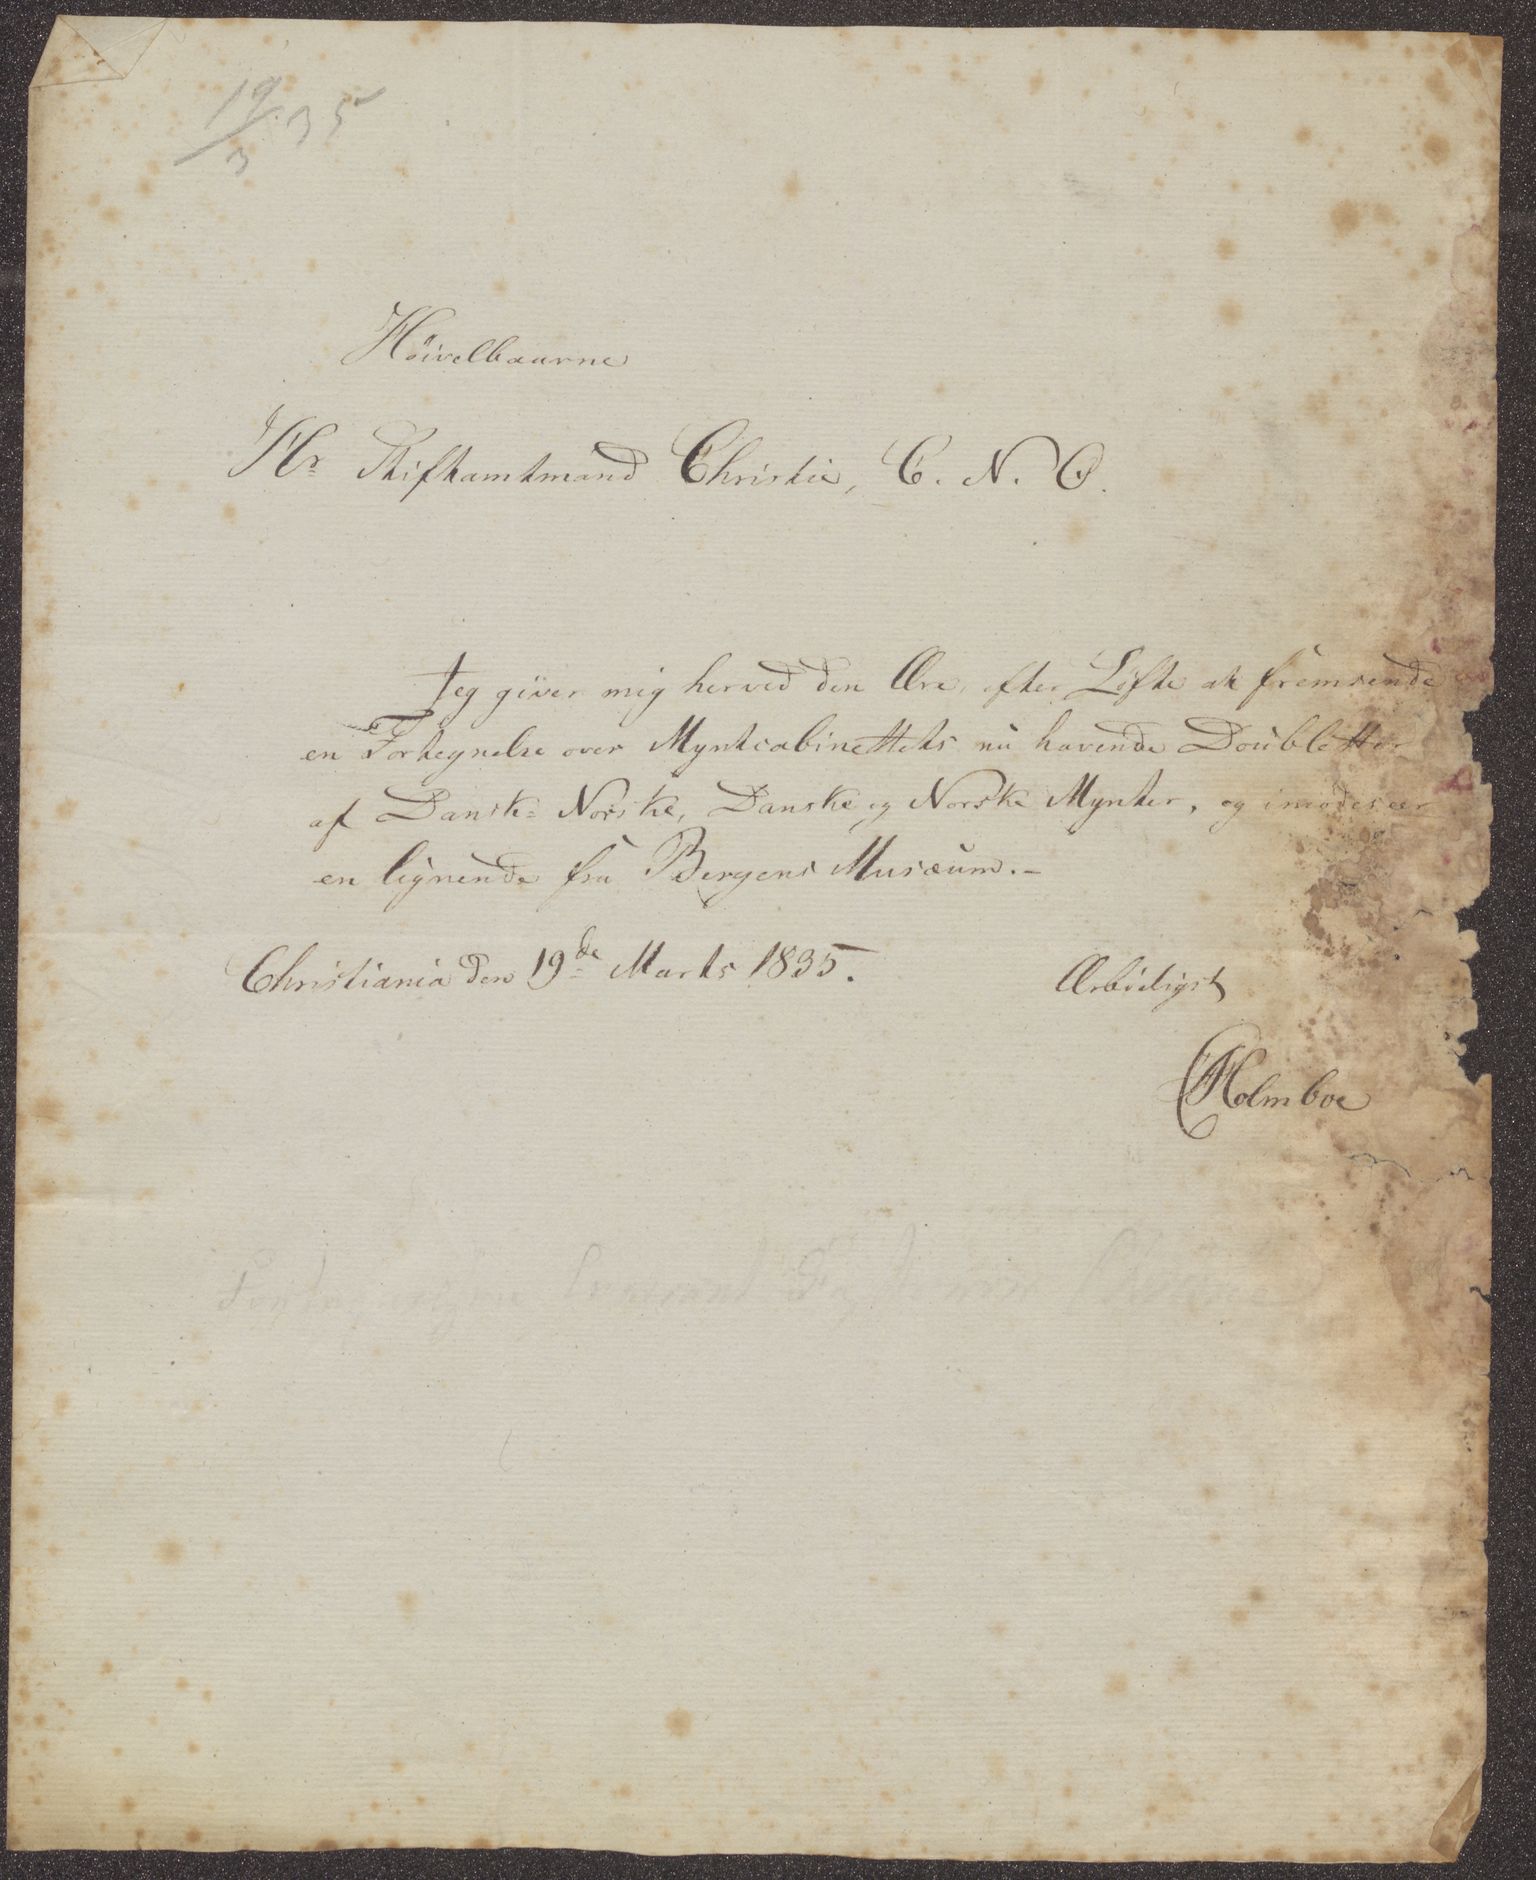 19/3 35
Höivelbaarne
Hr Stiftamtmand Christie, C. N. O.
Jeg giver mig herved den Ære, efter Löfte at fremsende
en Fortegnelse over Myntcabinettets nu havende Doubletter
af Dansk-Norske, Danske og Norske Mynter, og imødeseer
en lignende fra Bergens Musæum.-
Christiania den 19de Marts 1835.
Ærbödigst
Holmboe